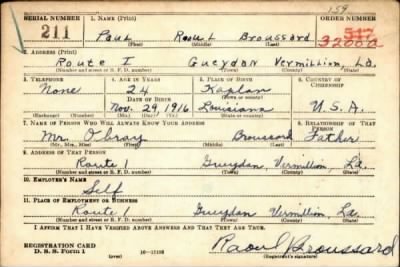 159
SERIAL NUMBER 1. NAME (Print) ORDER NUMBER
211 Paul Raoul Broussard 32000
(First) (Middle) (Last)
2. ADDRESS (Print)
Route I Gueydan Vermillion, La.
(Number and street or R. F. D. number) (Town) (County) (State)
3. TELEPHONE 4. AGE IN YEARS 5. PLACE OF BIRTH 6. COUNTRY OF CITIZENSHIP
None 24 Kaplan
DATE OF BIRTH (Town or county)
Nov. 29, 1916 Louisiana U.S.A.
(Exchange) (Number) (Mo.) (Day) (Yr.) (State or country)
7. NAME OF PERSON WHO WILL ALWAYS KNOW YOUR ADDRESS 8. RELATIONSHIP OF THAT PERSON
Mr. Obray Broussard Father
(Mr., Mrs., Miss) (First) (Middle) (Last)
9. ADDRESS OF THAT PERSON
Route 1 Gueydan, Vermillion, La.
(Number and street or R. F. D. number) (Town) (County) (State)
10. EMPLOYER'S NAME
Self
11. PLACE OF EMPLOYMENT OR BUSINESS
Route 1 Gueydan Vermillion, La.
(Number and street or R. F. D. number) (Town) (County) (State)
I AFFIRM THAT I HAVE VERIFIED ABOVE ANSWERS AND THAT THEY ARE TRUE.
Raoul Broussard
REGISTRATION CARD
D. S. S. Form 1 (over) (Registrant's signature)